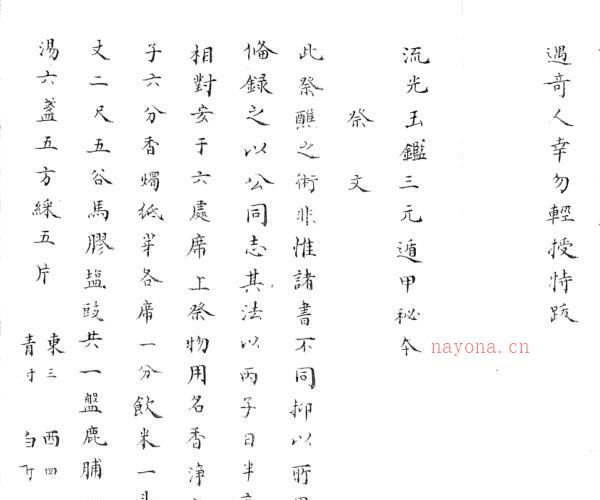 遇奇人幸勿輕授特跋
流光玉鑑三元遁甲秘本
祭文
此祭醮之術非惟諸書不同抑以所
俻録之以公同志其法以丙子日半
相對安于六處席上祭物用名香淨
子六分香燭紙茅各席一分飲米一斗
丈二尺五谷馬膠塩豉共一盤鹿脯
湯六盞五方綵五片
東三 西四
青寸 白
nayona.cn